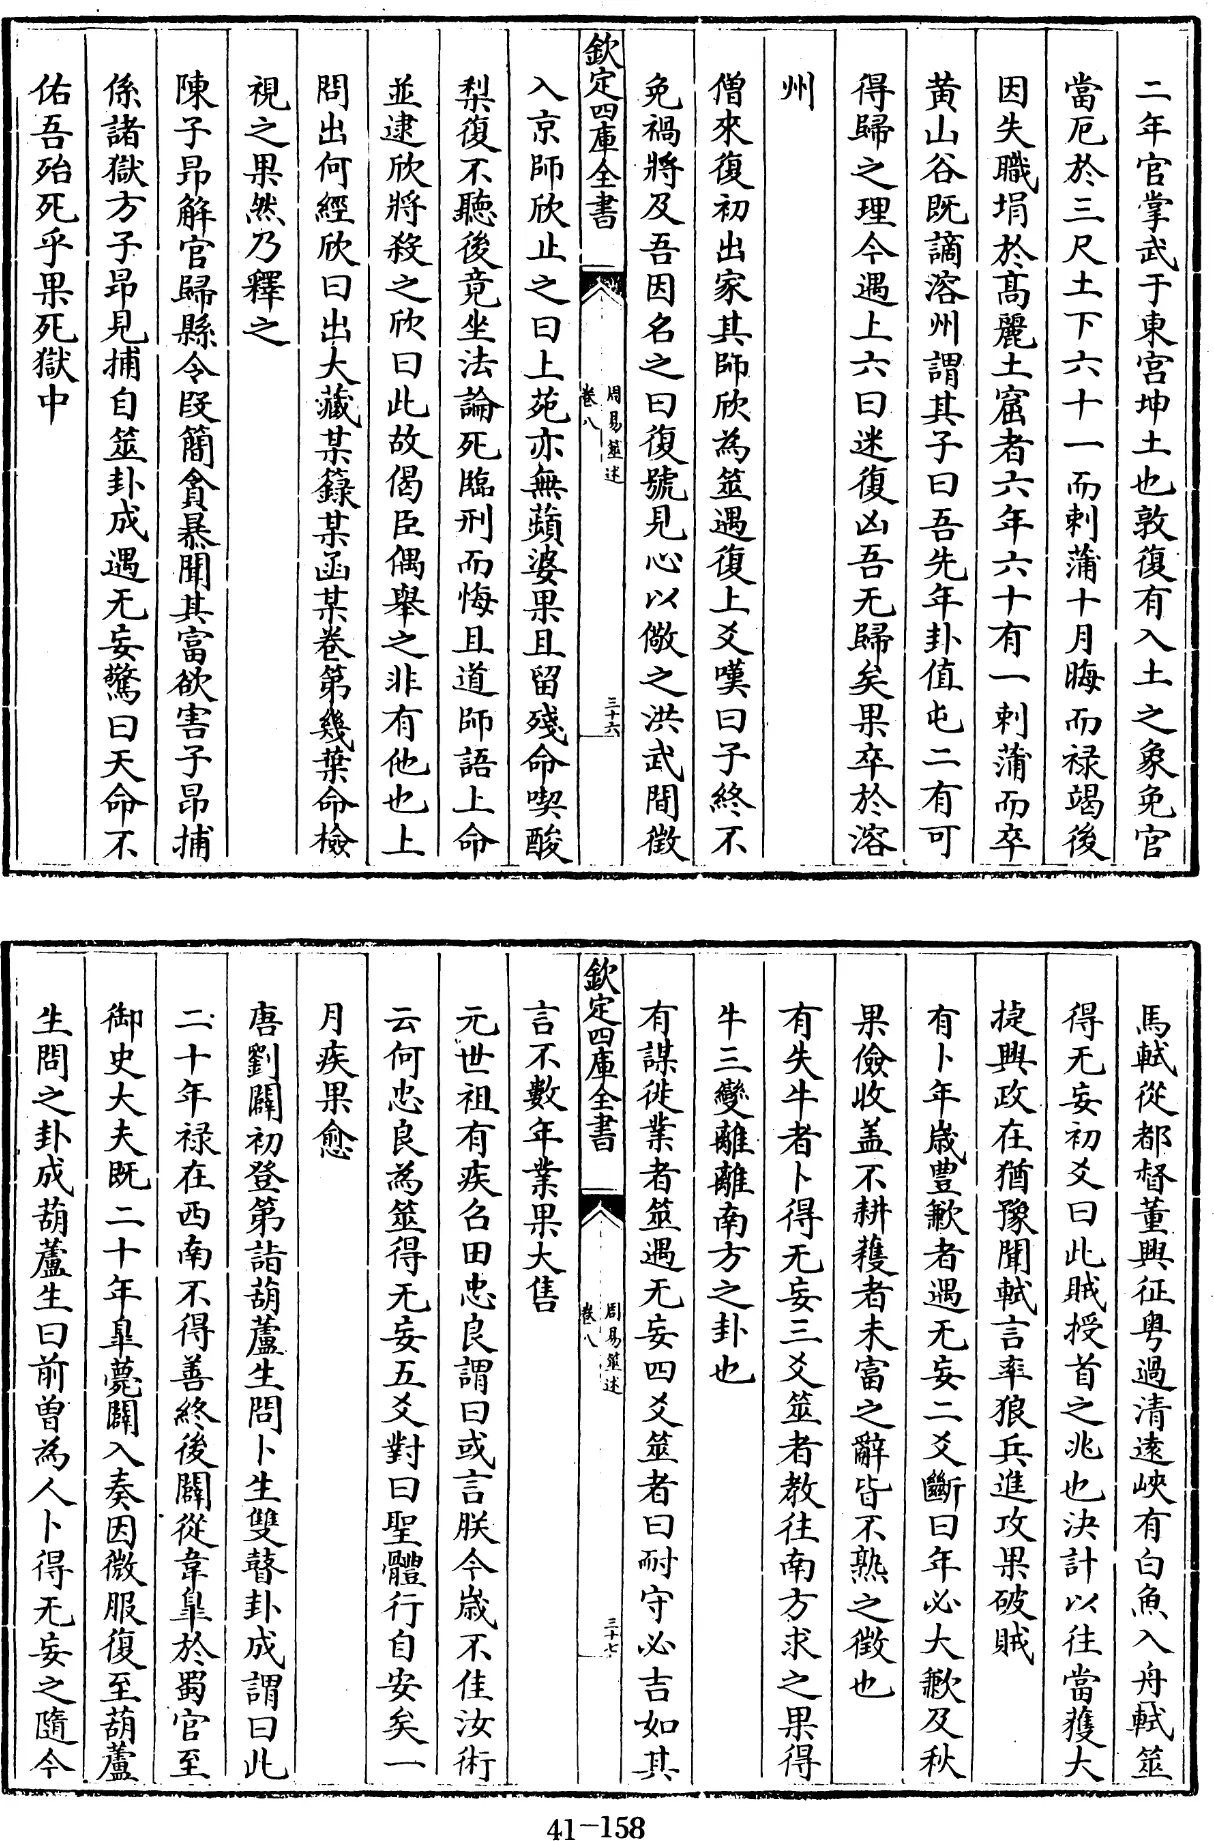 二年官掌武于東宮坤土也敦復有入土之象免官
當厄於三尺土下六十一而刺蒲十月晦而禄竭後
因失職堋於高麗土窟者六年六十有一刺蒲而卒
黄山谷既謫溶州謂其子曰吾先年卦值屯二有可
得歸之理今遇上六曰迷復凶吾无歸矣果卒於溶
州
僧來復初出家其師欣為筮遇復上爻嘆曰子終不
免禍將及吾因名之曰復號見心以儆之洪武間徵
欽定四庫全書
周易筮述
卷八
三十六
入京師欣止之曰上苑亦無蘋婆果且留殘命喫酸
梨復不聽後竟坐法論死臨刑而悔且道師語上命
並逮欣將殺之欣曰此故偈臣偶舉之非有他也上
問出何經欣曰出大藏某籙某函某卷第幾葉命檢
視之果然乃釋之
陳子昻解官歸縣令段簡貪暴聞其富欲害子昻捕
係諸獄方子昻見捕自筮卦成遇无妄驚曰天命不
佑吾殆死乎果死獄中
馬軾從都督董興征粤過清遠峽有白魚入舟軾筮
得无妄初爻曰此賊授首之兆也決計以往當獲大
捷興政在猶豫聞軾言率狼兵進攻果破賊
有卜年歳豐歉者遇无妄二爻斷曰年必大歉及秋
果儉收盖不耕穫者未富之辭皆不熟之徵也
有失牛者卜得无妄三爻筮者教往南方求之果得
牛三變離離南方之卦也
有謀徙業者筮遇无妄四爻筮者曰耐守必吉如其
欽定四庫全書
周易筮述
卷八
三十七
言不數年業果大售
元世祖有疾召田忠良謂曰或言朕今歳不佳汝術
云何忠良為筮得无妄五爻對曰聖體行自安矣一
月疾果愈
唐劉闢初登第詣葫蘆生問卜生雙瞽卦成謂曰此
二十年禄在西南不得善終後闢從韋臯於蜀官至
御史大夫既二十年臯薨闢入奏因微服復至葫蘆
生問之卦成葫蘆生曰前曽為人卜得无妄之隨今
41-158